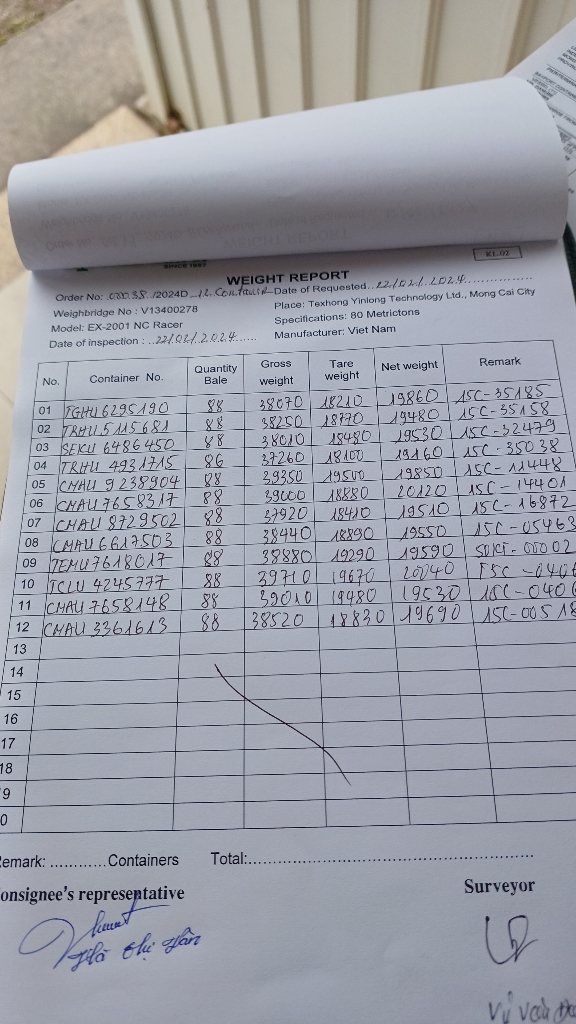 SINCE 1987
KL-02
WEIGHT REPORT
Order No: /2024D 12 Container Date of Requested 22/02/2024
Weighbridge No : V13400278 Place: Texhong Yinlong Technology Ltd., Mong Cai City
Model: EX-2001 NC Racer Specifications: 80 Metrictons
Date of inspection : 22/02/2024 Manufacturer: Viet Nam
No. Container No. Quantity Bale Gross weight Tare weight Net weight Remark
01 TGHU 6295190 88 38070 18210 19860 15C-35185
02 TRHU 5115681 88 38250 18770 19480 15C-35158
03 SEKU 6486450 88 38010 18480 19530 15C-32479
04 TRHU 4931715 86 37260 18100 19160 15C-35038
05 CMAU 9238904 88 39350 19500 19850 15C-12448
06 CMAU 7658317 88 39000 18880 20120 15C-14401
07 CMAU 8729502 88 37920 18410 19510 15C-16872
08 CMAU 6617503 88 38440 18890 19550 15C-05463
09 TEMU 7618017 88 38880 19290 19590
10 TCLU 4245777 88 39710 19670 20040
11 CMAU 7658148 88 39010 19480 19530
12 CMAU 3361613 88 38520 18830 19690
13
14
15
16
17
18
9
0
emark: ............Containers Total:
onsignee's representative Surveyor